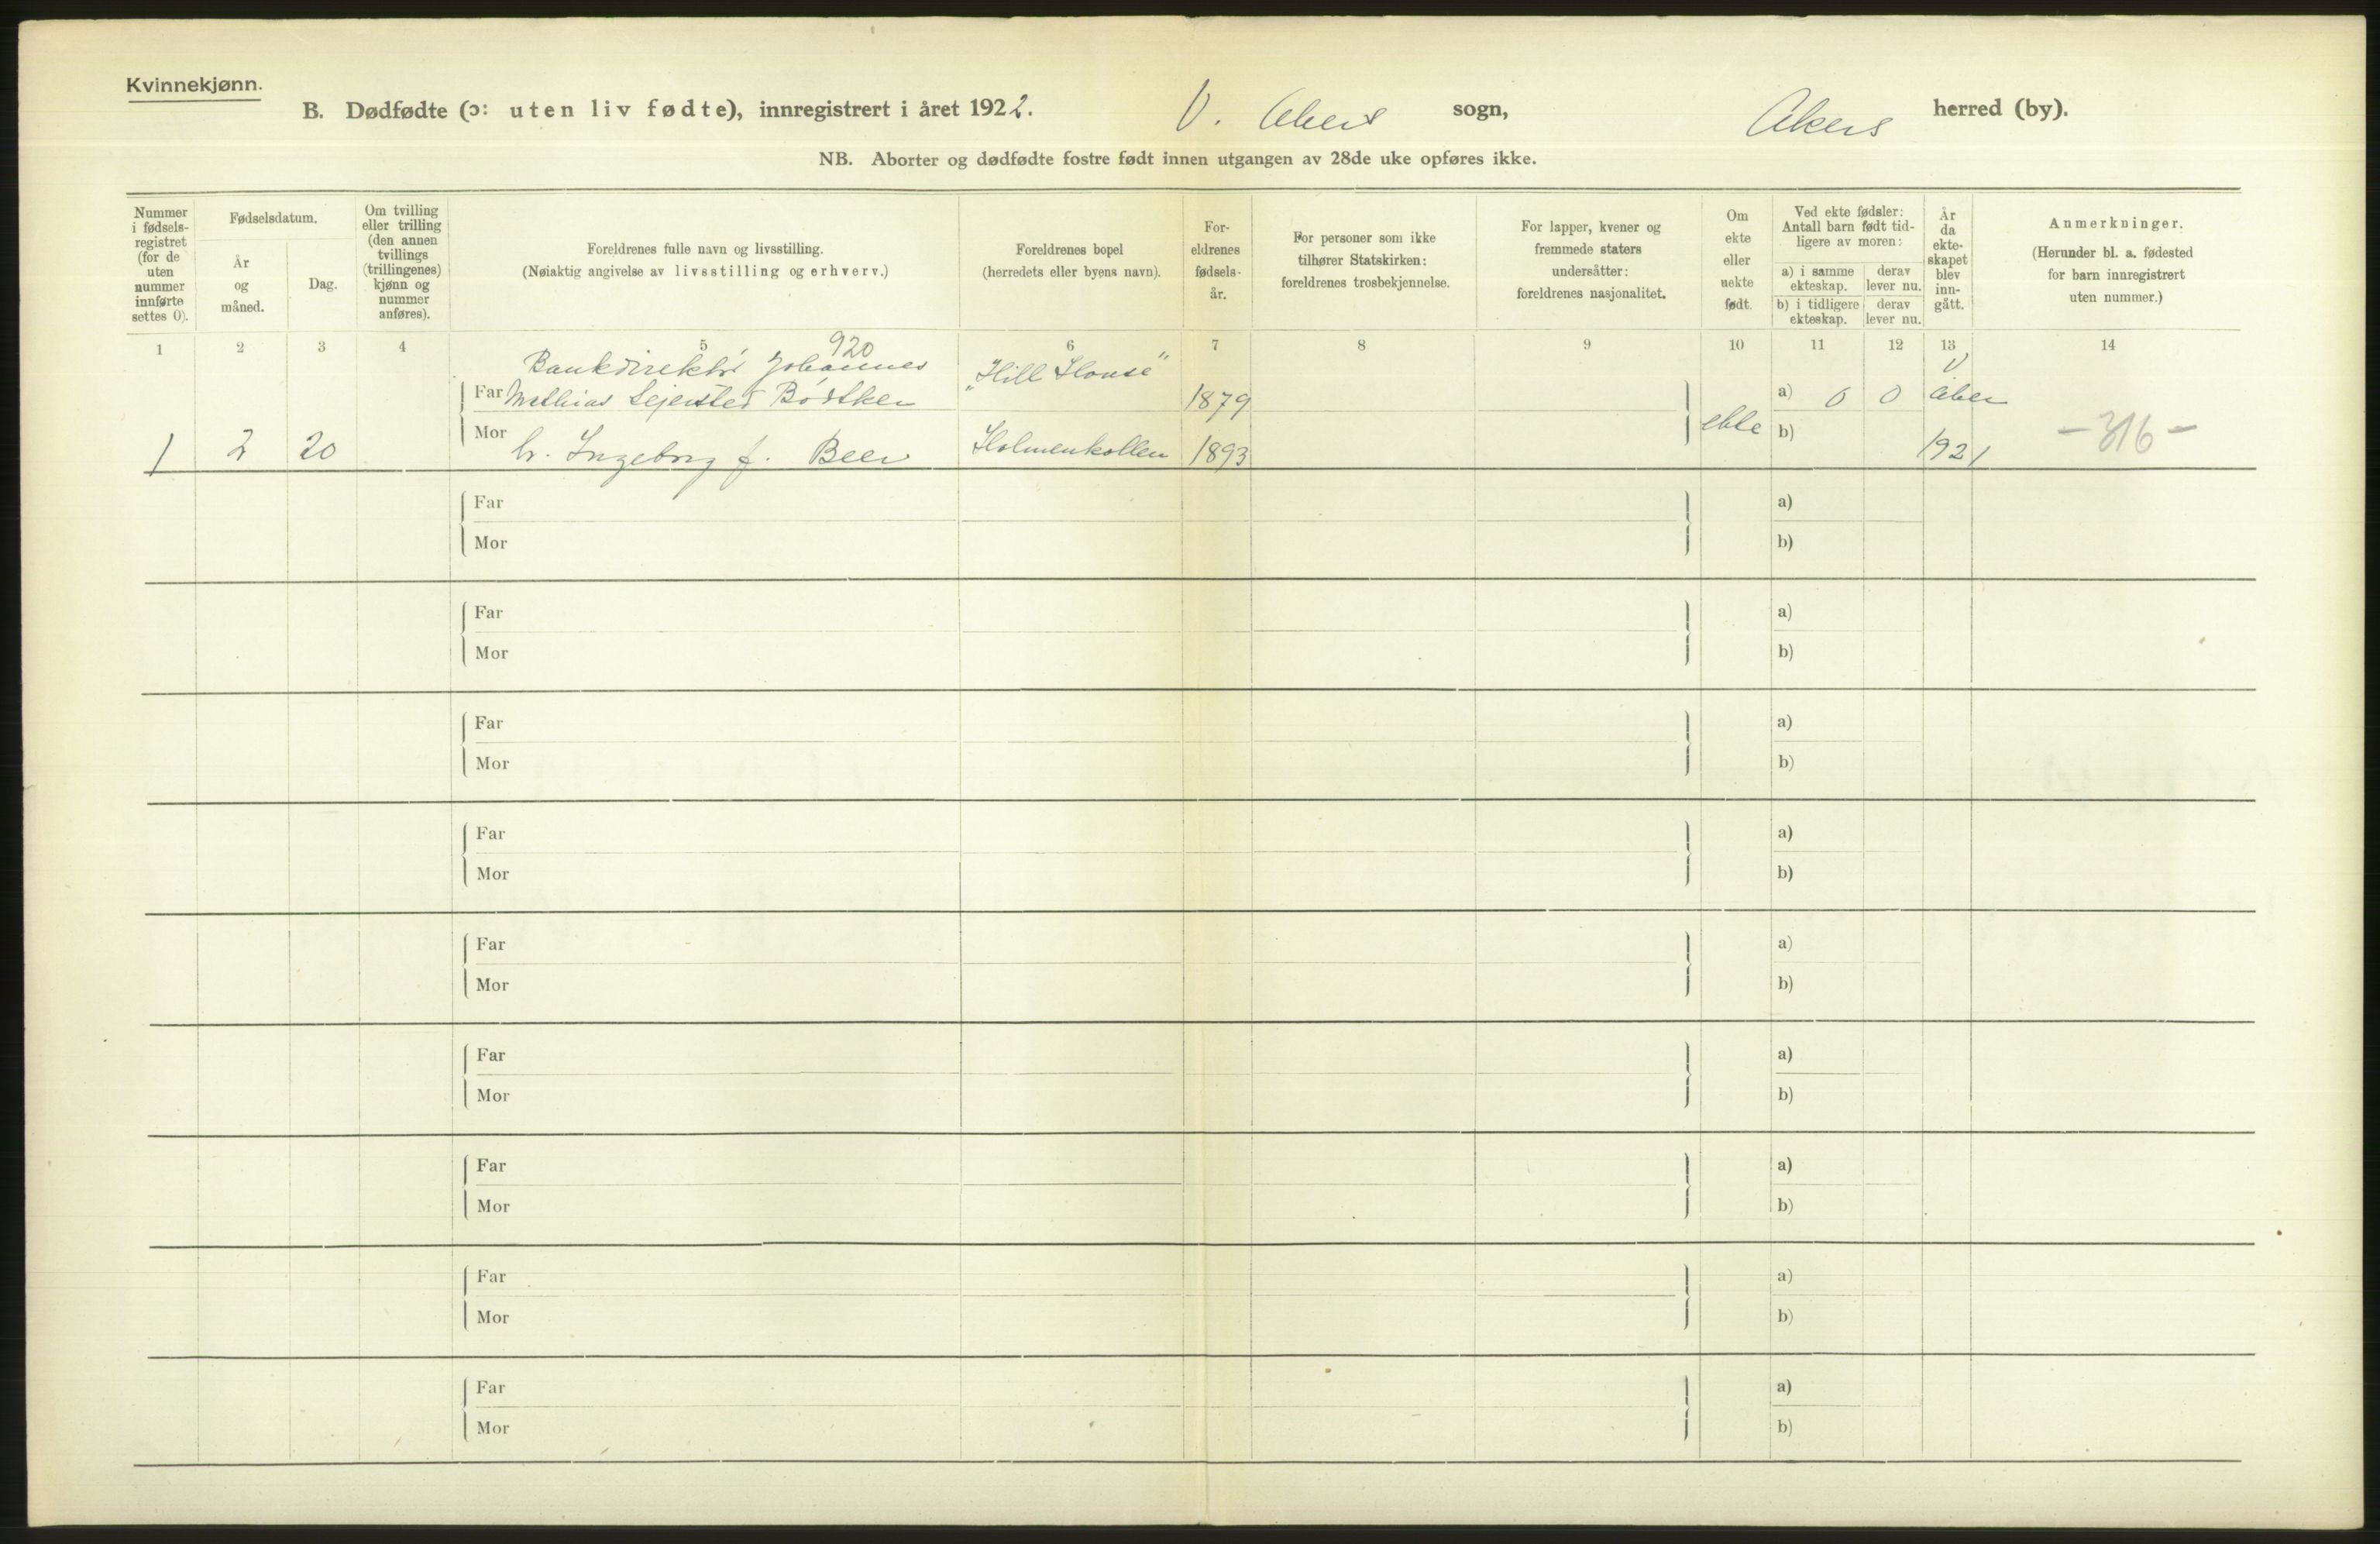 Kvinnekjønn.
B. Dødfødte (ɔ: uten liv fødte), innregistrert i året 1922. V. Akers sogn, Akers herred (by).
NB. Aborter og dødfødte fostre født innen utgangen av 28de uke opføres ikke.
Nummer
i fødsels-
registret
(for de
uten
nummer
innførte
settes 0).
Fødselsdatum.
År
og
måned.
Dag.
Om tvilling
eller trilling
(den annen
tvillings
(trillingenes)
kjønn og
nummer
anføres).
Foreldrenes fulle navn og livsstilling.
(Nøiaktig angivelse av livsstilling og erhverv.)
Foreldrenes bopel
(herredets eller byens navn).
For-
eldrenes
fødsels-
år.
For personer som ikke
tilhører Statskirken:
foreldrenes trosbekjennelse.
For lapper, kvener og
fremmede staters
undersåtter:
foreldrenes nasjonalitet.
Om
ekte
eller
uekte
født.
Ved ekte fødsler:
Antall barn født tid-
ligere av moren:
a) i samme
ekteskap.
derav
lever nu.
b) i tidligere
ekteskap.
derav
lever nu.
År
da
ekte-
skapet
blev
inn-
gått.
Anmerkninger.
(Herunder bl. a. fødested
for barn innregistrert
uten nummer.)
1 2 3 4 5 6 7 8 9 10 11 12 13 14
920
Bankdirektør Johannes „Hill House" V
Far Mathias Sejersted Bødtker 1879 a) 0 0 Aker
Mor ekte b) -316-
1 2 20 h. Ingeborg f. Beer Holmenkollen 1893 1921
Far a)
Mor b)
Far a)
Mor b)
Far a)
Mor b)
Far a)
Mor b)
Far a)
Mor b)
Far a)
Mor b)
Far a)
Mor b)
Far a)
Mor b)
Far a)
Mor b)